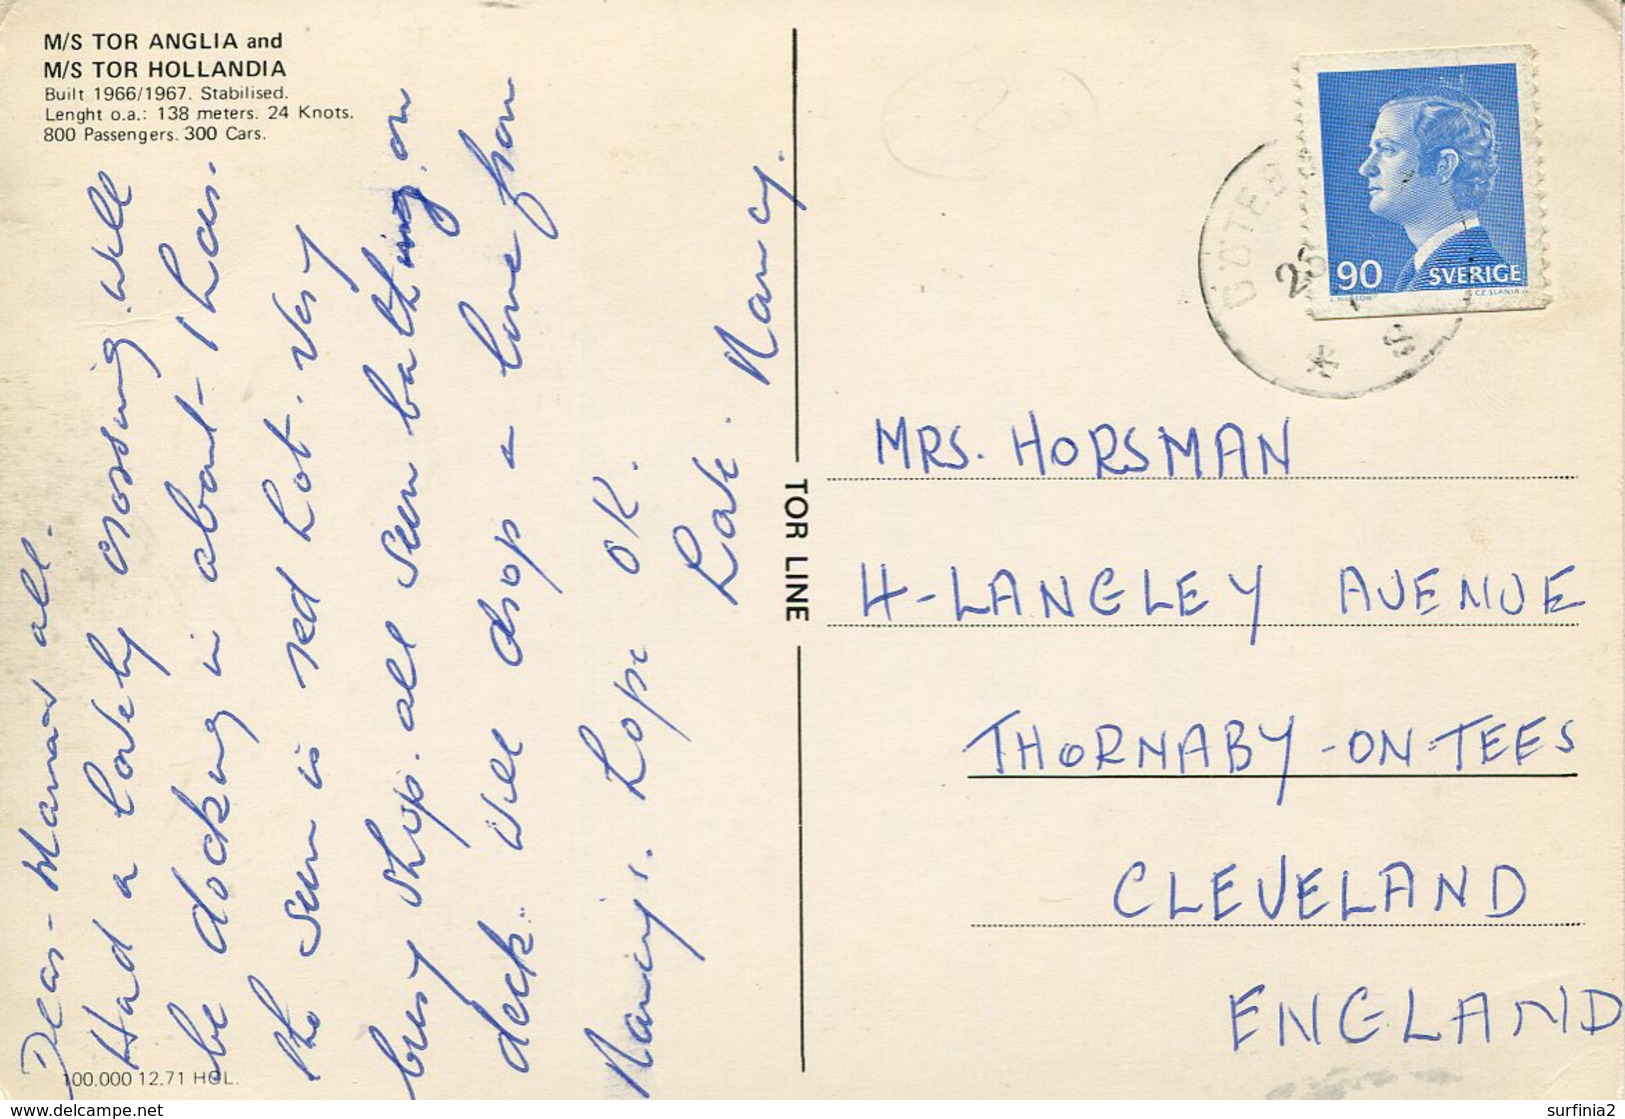 M/S TOR ANGLIA and
M/S TOR HOLLANDIA
Built 1966/1967. Stabilised.
Lenght o.a.: 138 meters. 24 Knots.
800 Passengers. 300 Cars.
Dear Mama all.
Had a lovely crossing. will
be docking in about 1 hour.
the sun is red hot. Very
busy ship. all sun bathing on
deck. Will drop a line from
Nancy's. Hope OK.
Love. Nancy.
TOR LINE
GÖTEB
25
S
90 SVERIGE
CZ. SLANIA
MRS. HORSMAN
4-LANGLEY AVENUE
THORNABY-ON-TEES
CLEVELAND
ENGLAND
100.000 12.71 HOL.
www.delcampe.net
surfinia2